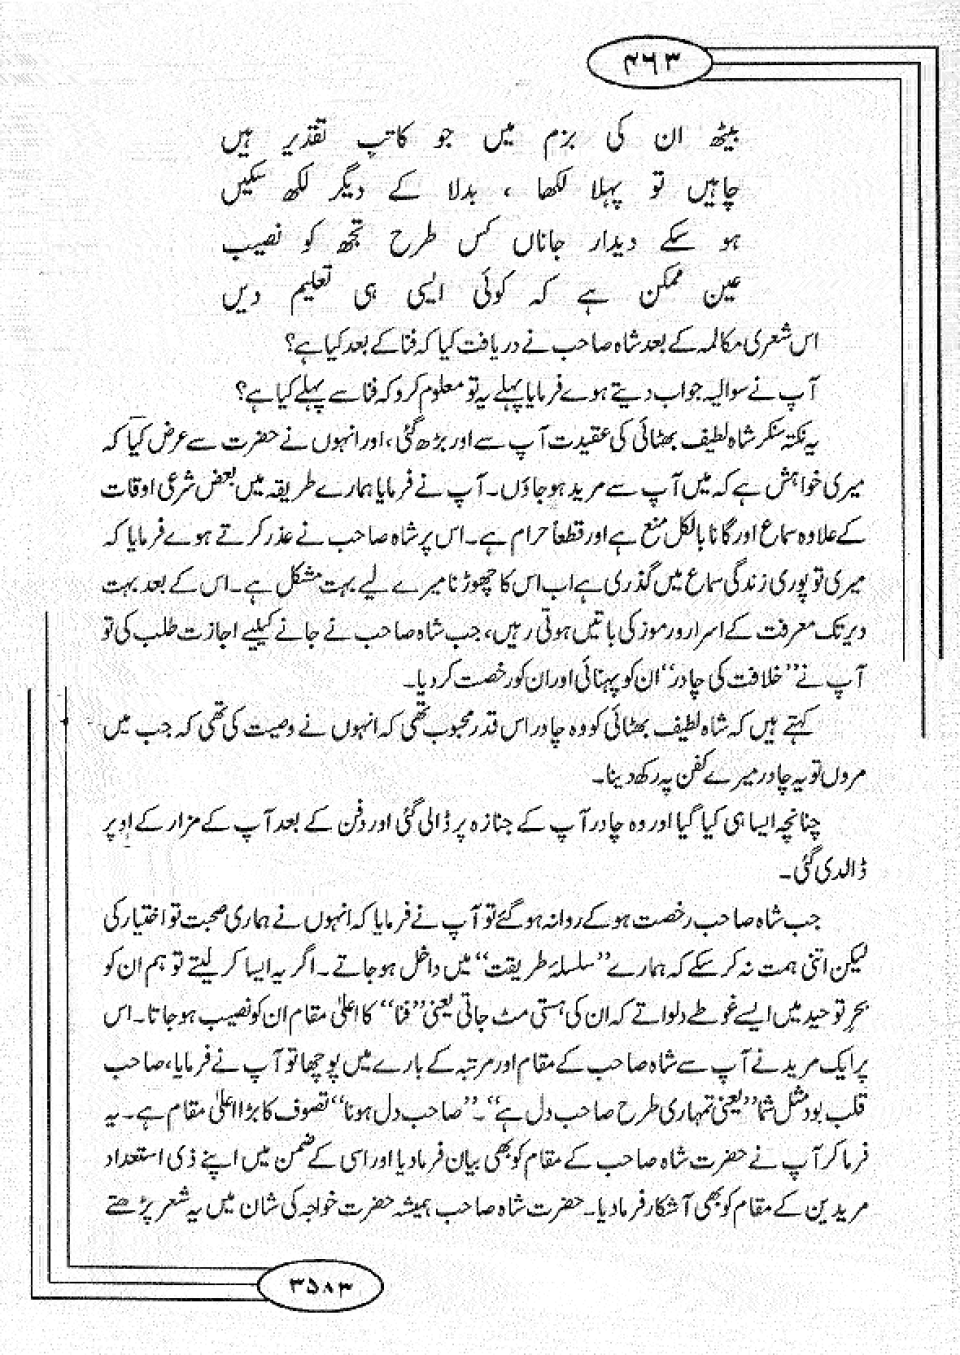 ۴۶۳
بیٹھ ان کی بزم میں جو کاتب تقدیر ہیں
چاہیں تو پہلا لکھا ، بدلا کے دیگر لکھ سکیں
ہو سکے دیدار جاناں کس طرح تجھ کو نصیب
عین ممکن ہے کہ کوئی ایسی ہی تعلیم دیں
اس شعری مکالمہ کے بعد شاہ صاحب نے دریافت کیا کہ فنا کے بعد کیا ہے؟
آپ نے سوالیہ جواب دیتے ہوے فرمایا پہلے یہ تو معلوم کرو کہ فنا سے پہلے کیا ہے؟
یہ نکتہ سنکر شاہ لطیف بھٹائی کی عقیدت آپ سے اور بڑھ گئی، اور انہوں نے حضرت سے عرض کیا کہ
میری خواہش ہے کہ میں آپ سے مرید ہو جاؤں۔ آپ نے فرمایا ہمارے طریقہ میں بعض شرعی اوقات
کے علاوہ سماع اور گانا بالکل منع ہے اور قطعاً حرام ہے۔ اس پر شاہ صاحب نے عذر کرتے ہوے فرمایا کہ
میری تو پوری زندگی سماع میں گذری ہے اب اس کا چھوڑنا میرے لیے بہت مشکل ہے۔ اس کے بعد بہت
دیر تک معرفت کے اسرار و رموز کی باتیں ہوتی رہیں، جب شاہ صاحب نے جانے کیلیے اجازت طلب کی تو
آپ نے ”خلافت کی چادر“ ان کو پہنائی اور ان کو رخصت کر دیا۔
کہتے ہیں کہ شاہ لطیف بھٹائی کو وہ چادر اس قدر محبوب تھی کہ انہوں نے وصیت کی تھی کہ جب میں
مروں تو یہ چادر میرے کفن پہ رکھ دینا۔
چنانچہ ایسا ہی کیا گیا اور وہ چادر آپ کے جنازہ پر ڈالی گئی اور دفن کے بعد آپ کے مزار کے اوپر
ڈالدی گئی۔
جب شاہ صاحب رخصت ہو کے روانہ ہو گئے تو آپ نے فرمایا کہ انہوں نے ہماری صحبت تو اختیار کی
لیکن اتنی ہمت نہ کر سکے کہ ہمارے ”سلسلۂ طریقت“ میں داخل ہو جاتے۔ اگر یہ ایسا کر لیتے تو ہم ان کو
بحرِ توحید میں ایسے غوطے دلواتے کہ ان کی ہستی مٹ جاتی یعنی ”فنا“ کا اعلیٰ مقام ان کو نصیب ہو جاتا۔ اس
پر ایک مرید نے آپ سے شاہ صاحب کے مقام اور مرتبہ کے بارے میں پوچھا تو آپ نے فرمایا، صاحب
قلب بود مثل شما ”یعنی تمہاری طرح صاحب دل ہے“۔ ”صاحب دل ہونا“ تصوف کا بڑا اعلیٰ مقام ہے۔ یہ
فرما کر آپ نے حضرت شاہ صاحب کے مقام کو بھی بیان فرما دیا اور اسی کے ضمن میں اپنے ذی استعداد
مریدین کے مقام کو بھی آشکار فرما دیا۔ حضرت شاہ صاحب ہمیشہ حضرت خواجہ کی شان میں یہ شعر پڑھتے
۳۵۸۳